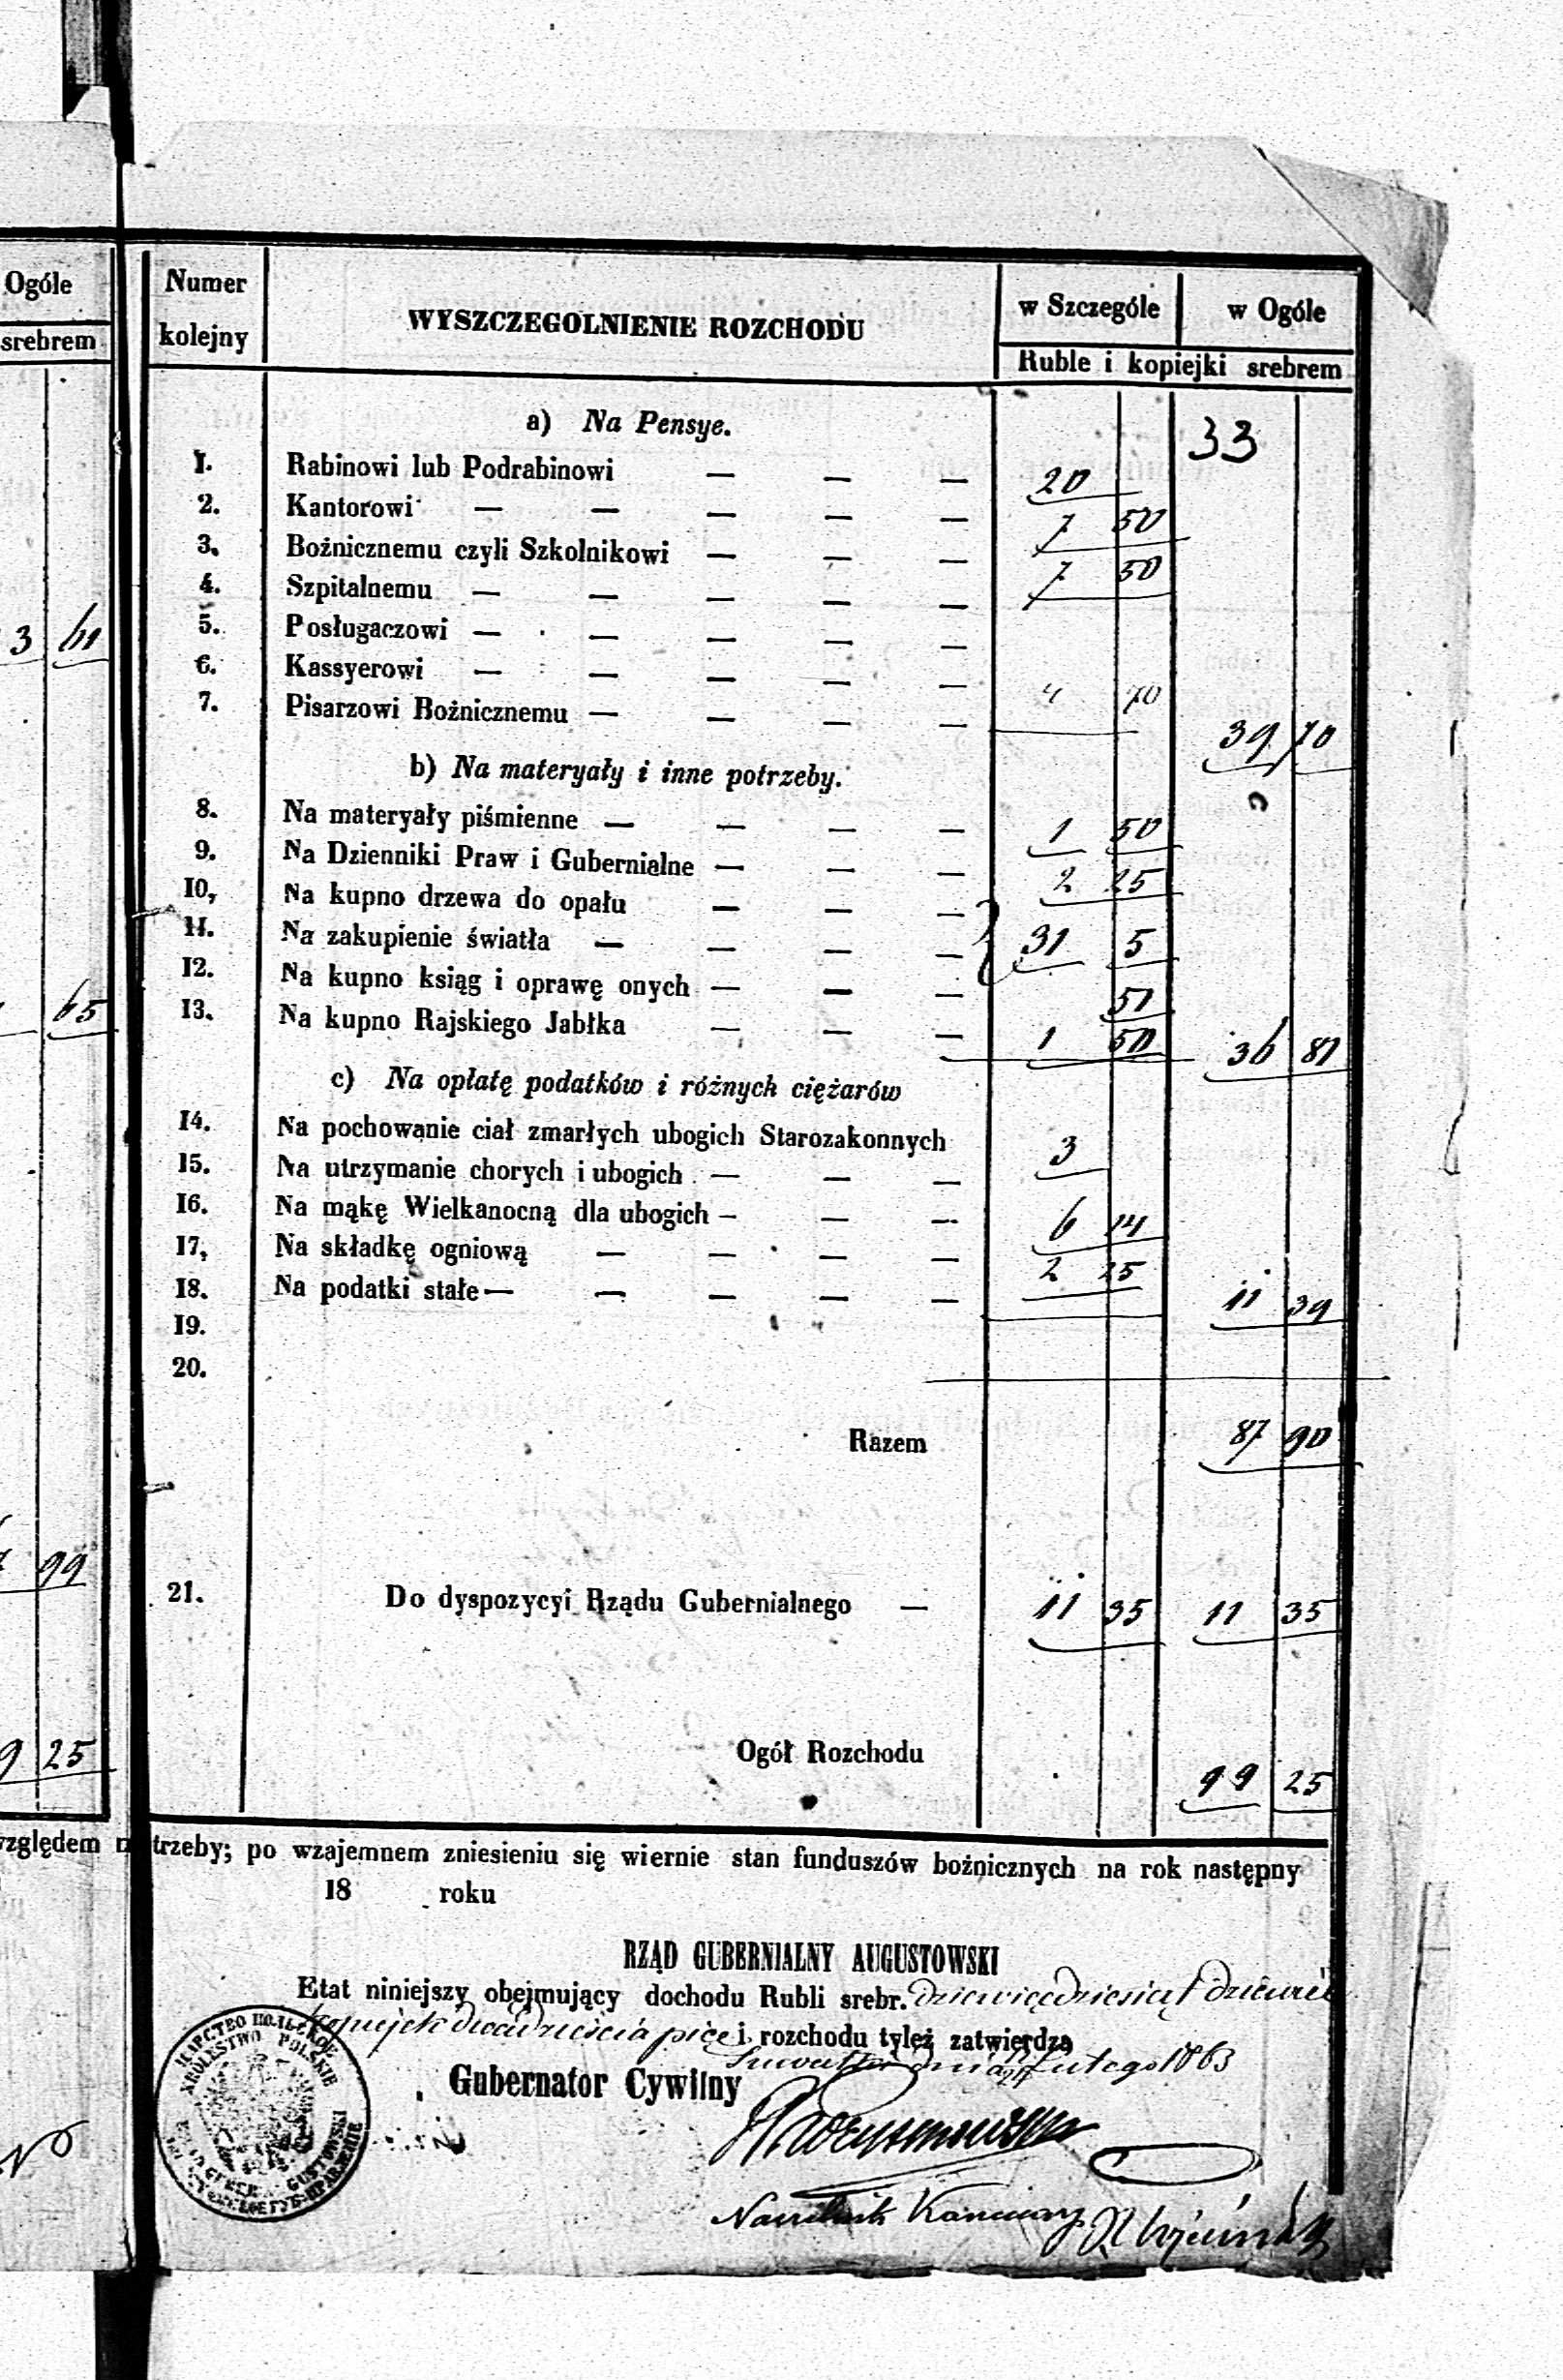 Ogóle
srebrem
3 61
65
99
9 25
Numer kolejny WYSZCZEGOLNIENIE ROZCHODU w Szczególe w Ogóle
Ruble i kopiejki srebrem
33
a) Na Pensye.
1. Rabinowi lub Podrabinowi — — — 20
2. Kantorowi — — — — — 7 50
3. Bożnicznemu czyli Szkolnikowi — — — 7 50
4. Szpitalnemu — — — — —
5. Posługaczowi — — — — —
6. Kassyerowi — — — — —
7. Pisarzowi Bożnicznemu — — — — 4 70 39 70
b) Na materyały i inne potrzeby.
8. Na materyały piśmienne — — — — 1 50
9. Na Dzienniki Praw i Gubernialne — — — 2 25
10, Na kupno drzewa do opału — — —
11. Na zakupienie światła — — — — 31 5
12. Na kupno ksiąg i oprawę onych — — — 51
13. Na kupno Rajskiego Jabłka — — — 1 50 36 81
c) Na opłatę podatków i różnych ciężarów
14. Na pochowanie ciał zmarłych ubogich Starozakonnych 3
15. Na utrzymanie chorych i ubogich — — —
16. Na mąkę Wielkanocną dla ubogich — — — 6 14
17, Na składkę ogniową — — — — 2 25
18. Na podatki stałe — — — — — 11 39
19.
20.
Razem 87 90
21. Do dyspozycyi Rządu Gubernialnego — 11 35 11 35
Ogół Rozchodu 99 25
względem trzeby; po wzajemnem zniesieniu się wiernie stan funduszów bożnicznych na rok następny
18 roku
RZĄD GUBERNIALNY AUGUSTOWSKI
Etat niniejszy obejmujący dochodu Rubli srebr. dziewięćdziesiąt dziewięć
kopiejek dwadzieścia pięć i rozchodu tyleż zatwierdza
Lutego 1863
Gubernator Cywilny
KROLESTWO POLSKIE
Naczelnik Kancelaryi